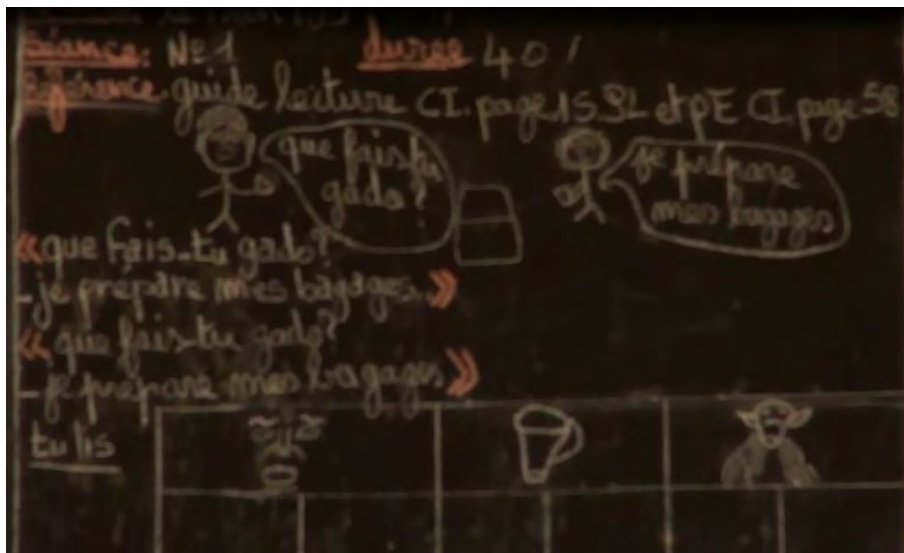 Séance: N°1 durée 40'
Référence guide lecture CI. page 15.SL et pE CI. page 58
que fais-tu
gado?
je prépare
mes bagages
«que fais-tu gado?
-je prépare mes bagages.»
« que fais-tu gado?
-je prépare mes bagages»
tu lis